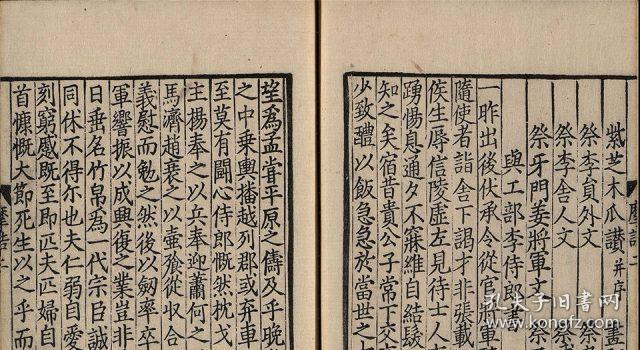 紫芝木瓜讚并序
祭李員外文
祭李舍人文
祭牙門姜將軍文
與工部李侍郎書
一昨出後伏承令從官將軍
隨使者詣舍下謁才非張載
侯生辱信陵虛左見待士人
踴惕息通夕不寐維自結髮
知之矣宿昔貴公子常下交
少致醴以飯急急於當世之
望為孟甞平原之儔及乎晚
之中乘輿播越列郡或弃車
至莫有鬬心侍郎慨然枕戈
主楊奉之以兵奉迎蕭何之
馬濟趙衰之以壷飱從収合
義慰而勉之然後以劒率卒
軍響振以成興復之業豈非
日垂名竹帛為一代宗臣誠
同休不得尓也夫仁弱自愛
刻窮慼既至即匹夫匹婦自
首慷慨大節死生以之乎而
孔夫子旧书网